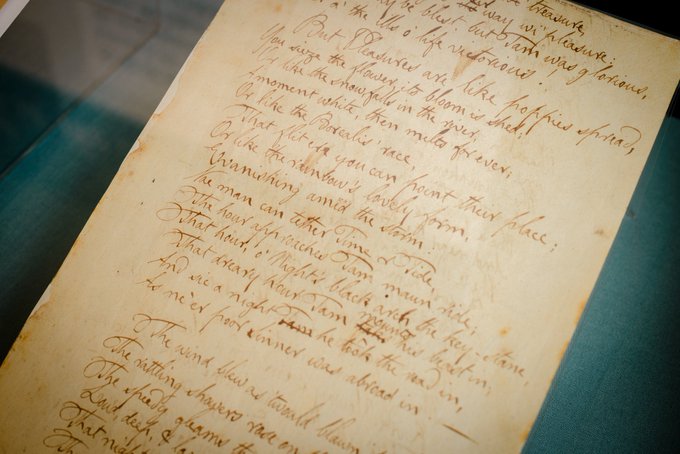 way wi' pleasure;
be blest but Tam was glorious,
o' the ills o' life victorious.
But Pleasures are like poppies spread,
You sieze the flower, its bloom is shed;
Or like the snow falls in the river,
A moment white, then melts for ever;
Or like the Borealis race,
That flit ere you can point their place;
Or like the rainbow's lovely form,
Evanishing amid the storm.
Nae man can tether Time or Tide,
The hour approaches Tam maun ride;
That hour, o' Night's black arch the key-stane,
That dreary hour Tam mounts his beast in;
And sic a night he took the road in,
As ne'er poor sinner was abroad in.
The wind blew as 'twould blawn
The rattling showers rose on
The speedy gleams the
Loud, deep, &
That night
The